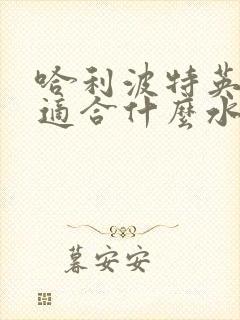 哈利波特英
適合什麼水
暮安安